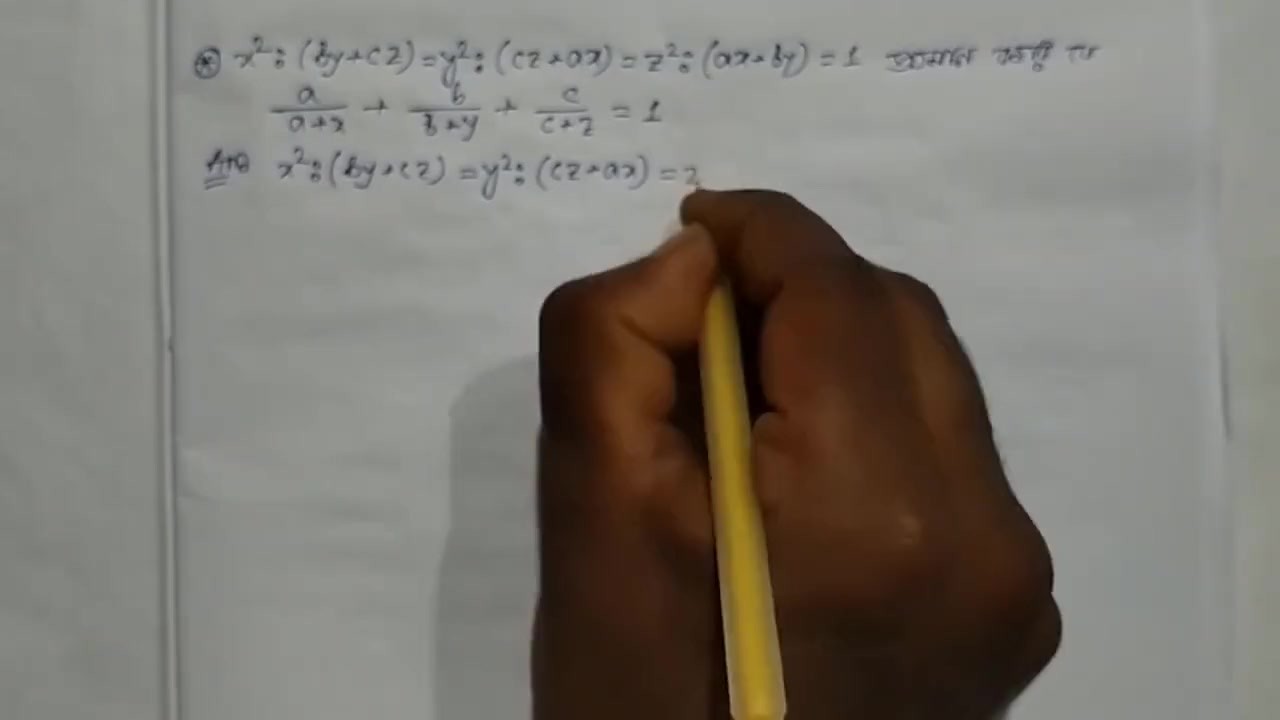 x²:(by+cz)=y²:(cz+ax)=z²:(ax+by)=1 প্রমাণ করি যে
a/(a+x) + b/(b+y) + c/(c+z) = 1
Ans x²:(by+cz)=y²:(cz+ax)=z